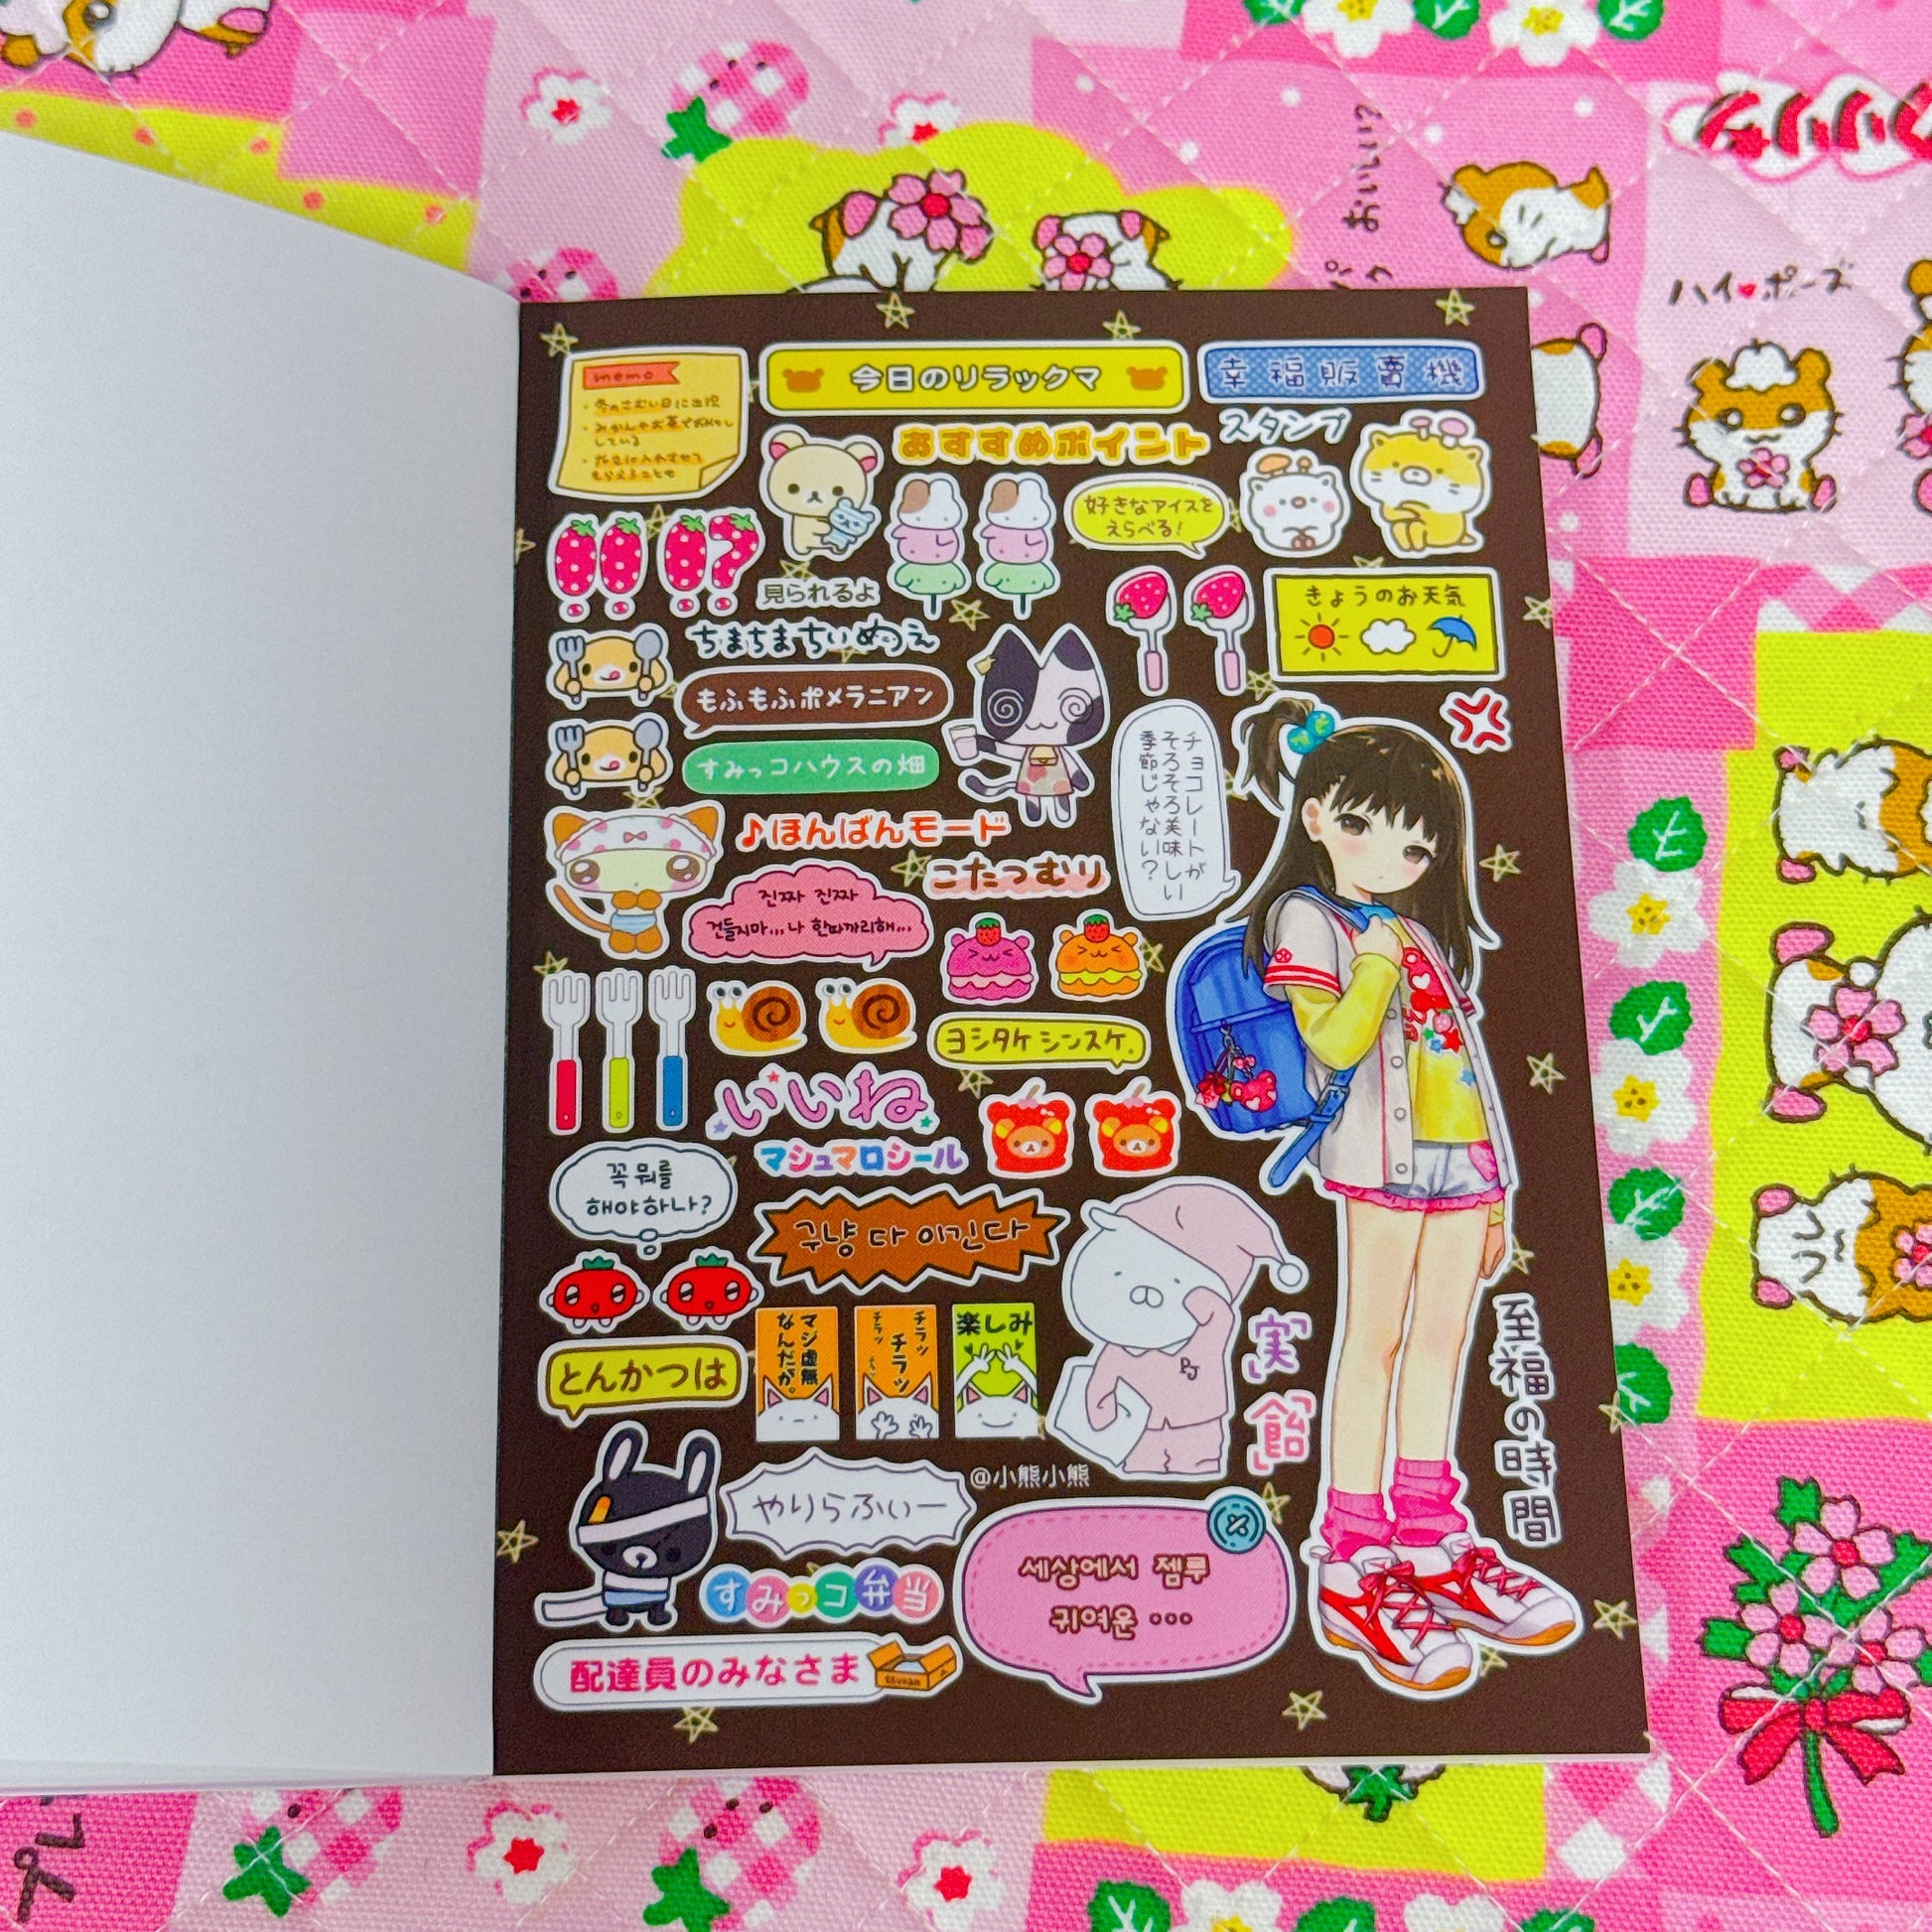 memo
今日のリラックマ
幸福販賣機
おすすめポイント
スタンプ
好きなアイスを
えらべる!
見られるよ
きょうのお天気
もふもふポメラニアン
すみっコハウスの畑
チョコレートが
そろそろ美味しい
季節じゃない?
♪ほんばんモード
こたつむり
진짜 진짜
건들지마...나 한따까리해...
ヨシタケシンスケ.
いいね
マシュマロシール
꼭 뭐를
해야하나?
구냥 다 이긴다
マジ虚無
なんだが。
チラッ
チラッ
楽しみ
とんかつは
「実」
「飴」
至福の時間
@小熊小熊
やりらふぃー
すみっコ弁当
세상에서 젬루
귀여운 ...
配達員のみなさま
ハイ♥ポーズ
おいしい
プレ